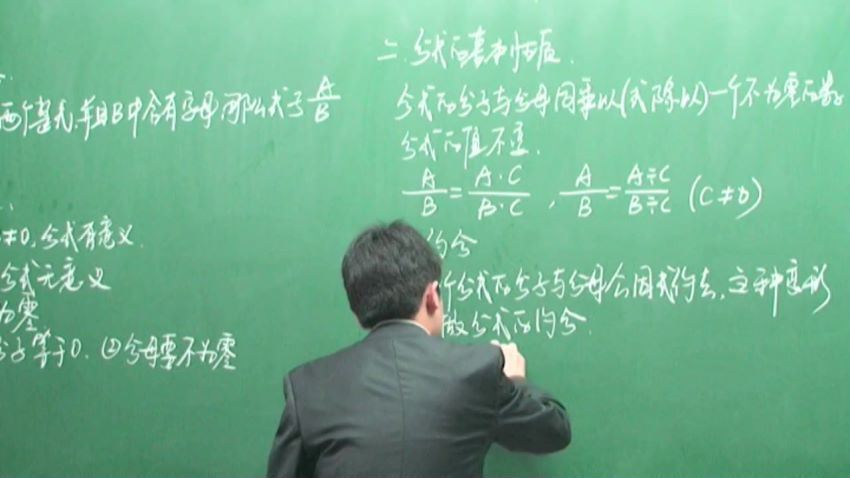 两个整式,并且B中含有字母,那么式子 A/B
≠0,分式有意义.
分式无意义
为零
分子等于0. ②分母要不为零
二.分式的基本性质.
分式的分子与分母同乘以(或除以)一个不为零的数
分式的值不变.
A/B = A·C/B·C , A/B = A÷C/B÷C (C≠0)
约分
个分式的分子与分母公因式约去,这种变形
做分式的约分.